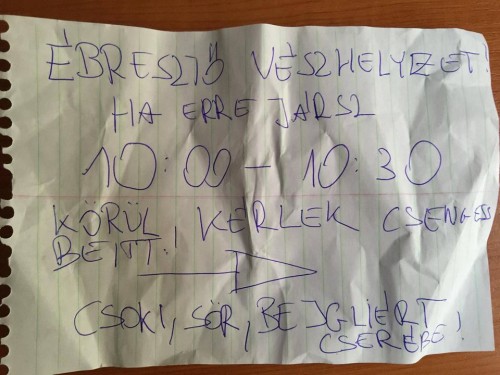 ÉBRESZTŐ VÉSZHELYZET!
HA ERRE JÁRSZ
10:00 - 10:30
KÖRÜL KÉRLEK CSENGESS
BE ITT!
CSOKI, SÖR, BEJGLIÉRT
CSERÉBE!